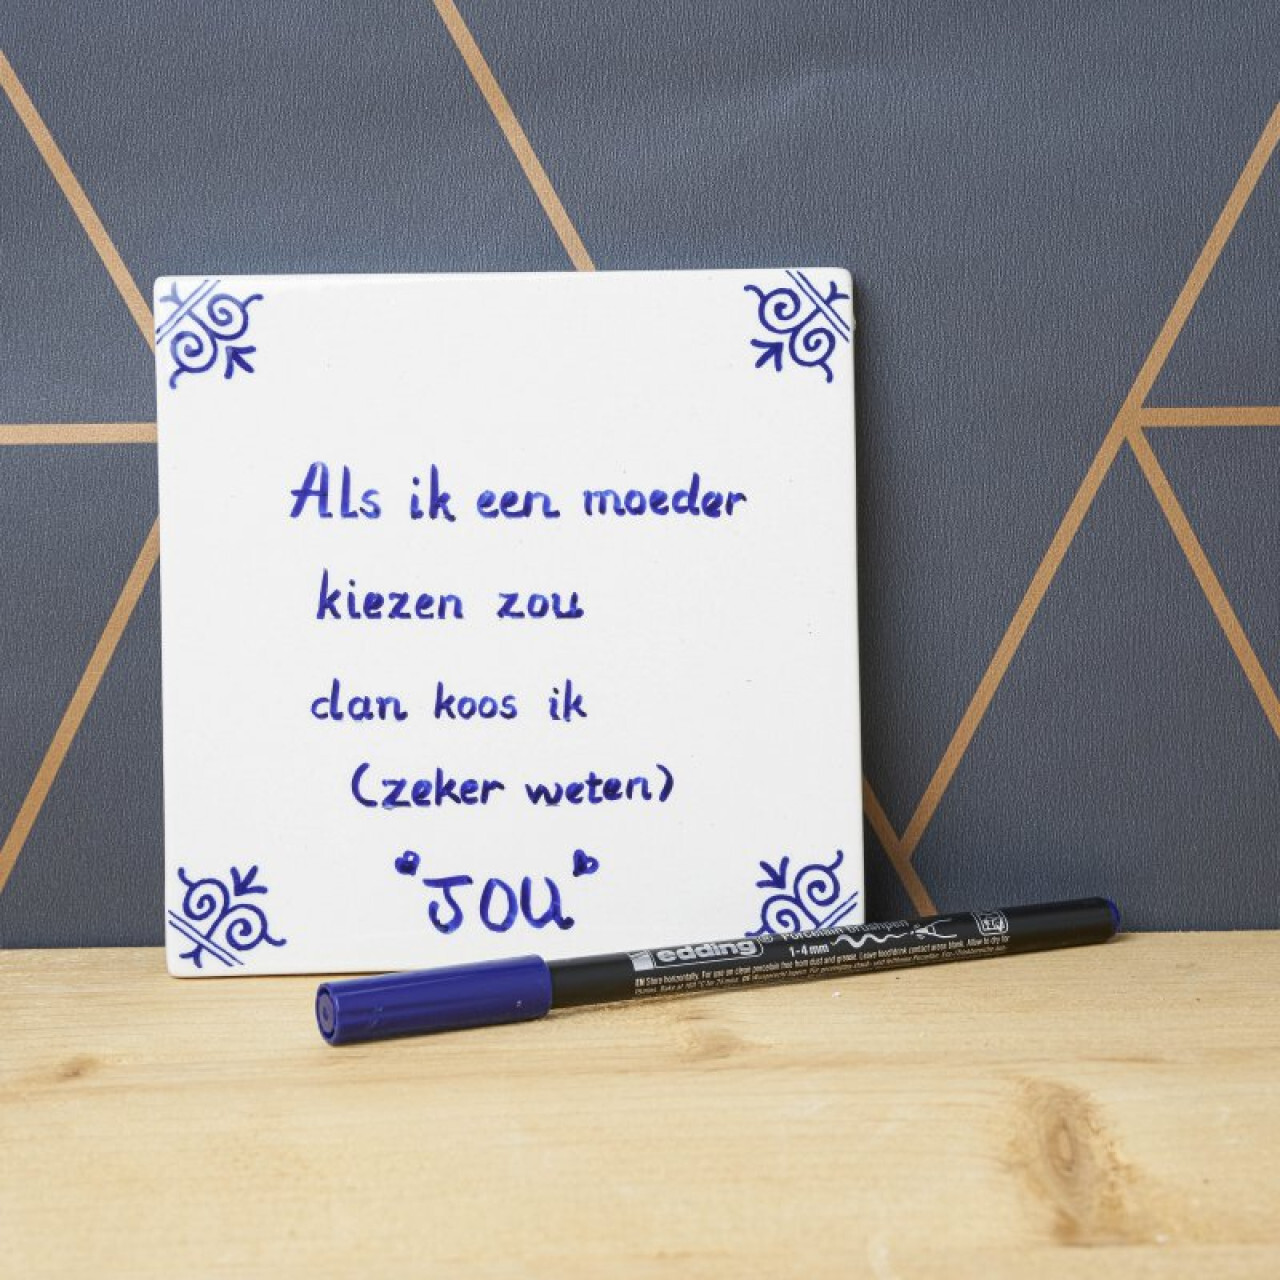 Als ik een moeder
kiezen zou
dan koos ik
(zeker weten)
JOU
edding® Porcelain brushpen
1-4 mm
EN Store horizontally. For use on clean porcelain free from dust and grease. Leave food/drink contact areas blank. Allow to dry for